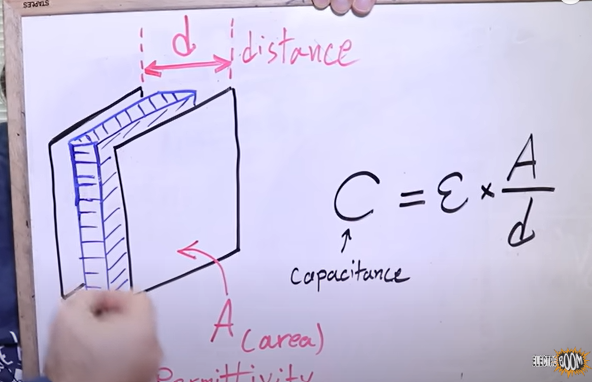 STAPLES
d
distance
C = ε × A/d
capacitance
A (area)
Permittivity
ELECTROBOOM